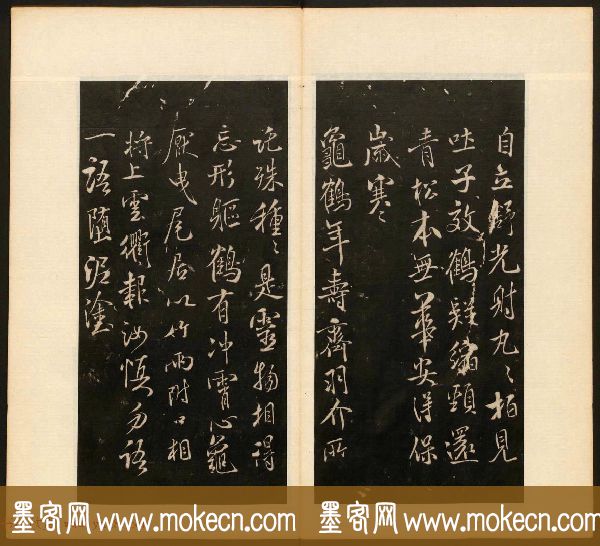 自立舒光射丸〻柏見
吐子效鶴疑縮頸還
青松本無華安得保
歲寒
龜鶴年壽齊羽介所
託殊種〻是靈物相得
忘形軀鶴有冲霄心龜
厭曳尾居以竹兩附口相
將上雲衢報汝慎勿語
一語墮泥塗
墨客网 www.mokecn.com
墨客网 www.mokecn.com